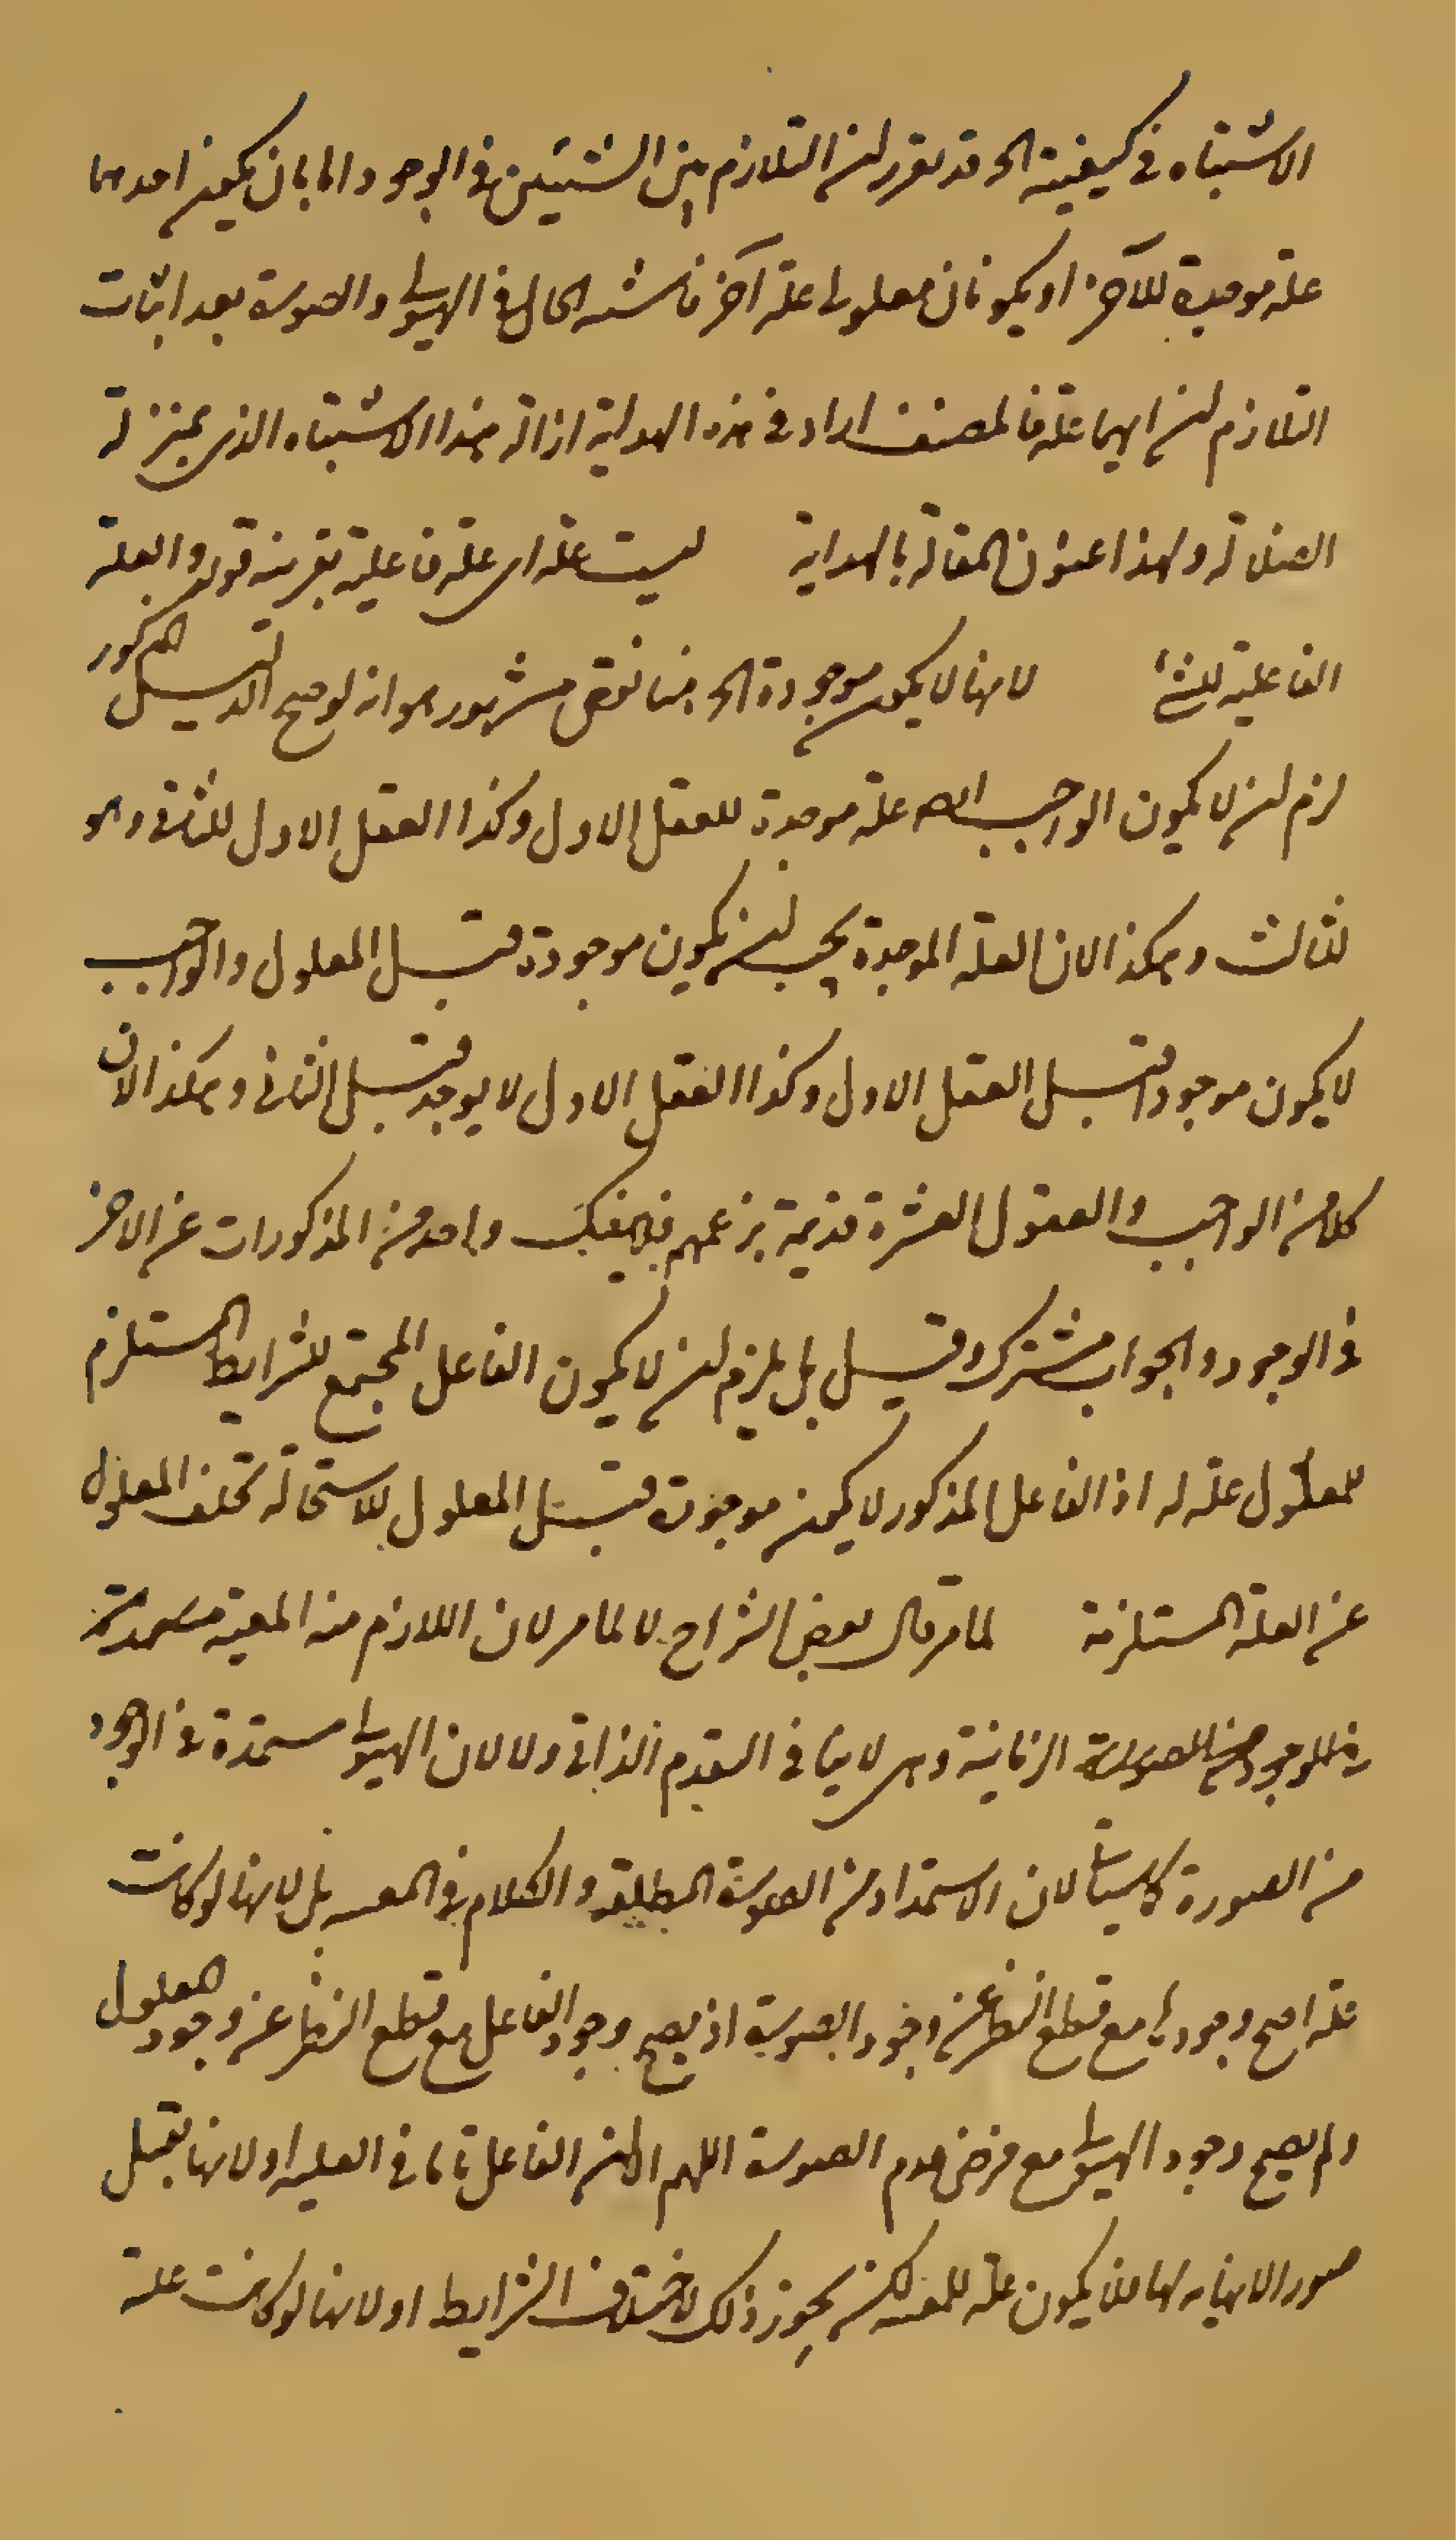 الاشتباه في كيفية الخ قد تقرر ان التلازم بين الشيئين في الوجود اما بان يكون احدهما
علة موجدة للآخر او يكونان معلولى علة آخر فاشتبه الحال في الهيولى والصورة بعد اثبات
التلازم ان ايهما علة فالمصنف اراد في هذه الهداية ازالة هذا الاشتباه الذى بمنزلة
الضلالة ولهذا عنون المقالة بالهداية ليست علة اى علة فاعلية بقرينة قوله والعلة
الفاعلية للشئ لانها لا يكون موجودة الخ هنا نقض مشهور هو انه لو صح الدليل المذكور
لزم ان لا يكون الواجب علة موجدة للعقل الاول وكذا العقل الاول للثانى وهو
لثالث وهكذا لان العلة الموجدة يجب ان يكون موجودة قبل المعلول والواجب
لا يكون موجودا قبل العقل الاول وكذا العقل الاول لا يوجد قبل الثانى وهكذا لان
كلا من الواجب والعقول العشرة قديمة بزعمهم فلا ينفك واحد من المذكورات عن الاخر
في الوجود والجواب مشترك وقيل بل يلزم ان لا يكون الفاعل المجتمع للشرايط المستلزم
للمعلول علة له اذ الفاعل المذكور لا يكون موجودة قبل المعلول للاستحالة تخلف المعلول
عن العلة المستلزمة لما مر قال بعض الشراح لا لما مر لان اللازم منه المعية
الزمانية وهى لا ينافى التقدم الذاتى ولا لان الهيولى مستمدة في الوجود
من الصورة كما سيأتى لان الاستمداد من الصورة المطلقة والكلام في بل لانها لو كانت
علة لصح وجودها مع قطع النظر عن وجود الصورة اذ يصح وجود الفاعل مع قطع النظر عن وجود المعلول
ولم يصح وجود الهيولى مع فرض عدم الصورة اللهم الا ان الفاعل تاما في العلية او لانها تقبل
صور الا نهاية لها فلا يكون علة لكن يجوز ذلك لاختلاف الشرايط او لانها لو كانت علة